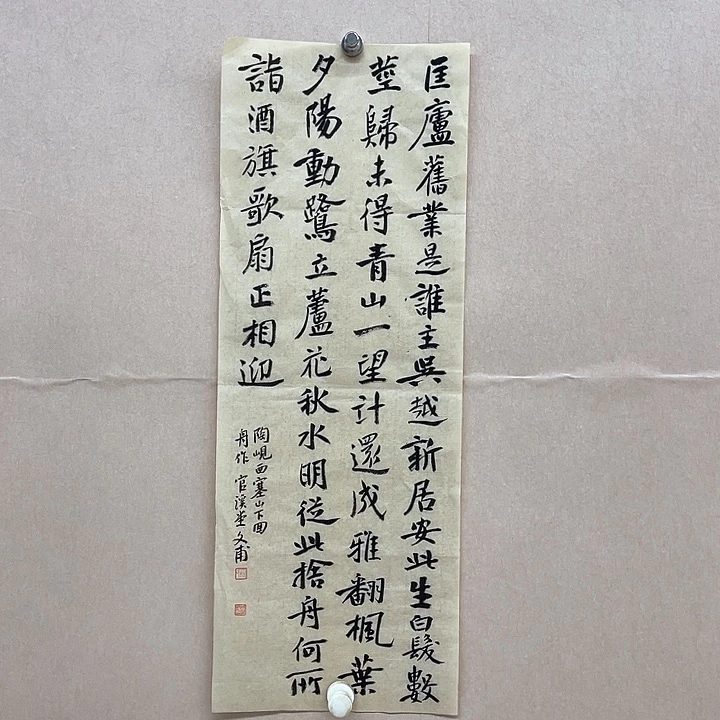 匡廬舊業是誰主吳越新居安此生白髮數
莖歸未得青山一望計還成雅翻楓葉
夕陽動鷺立蘆花秋水明從此捨舟何所
詣酒旗歌扇正相迎
陶峴西塞山下回
舟作 官溪堂 文甫